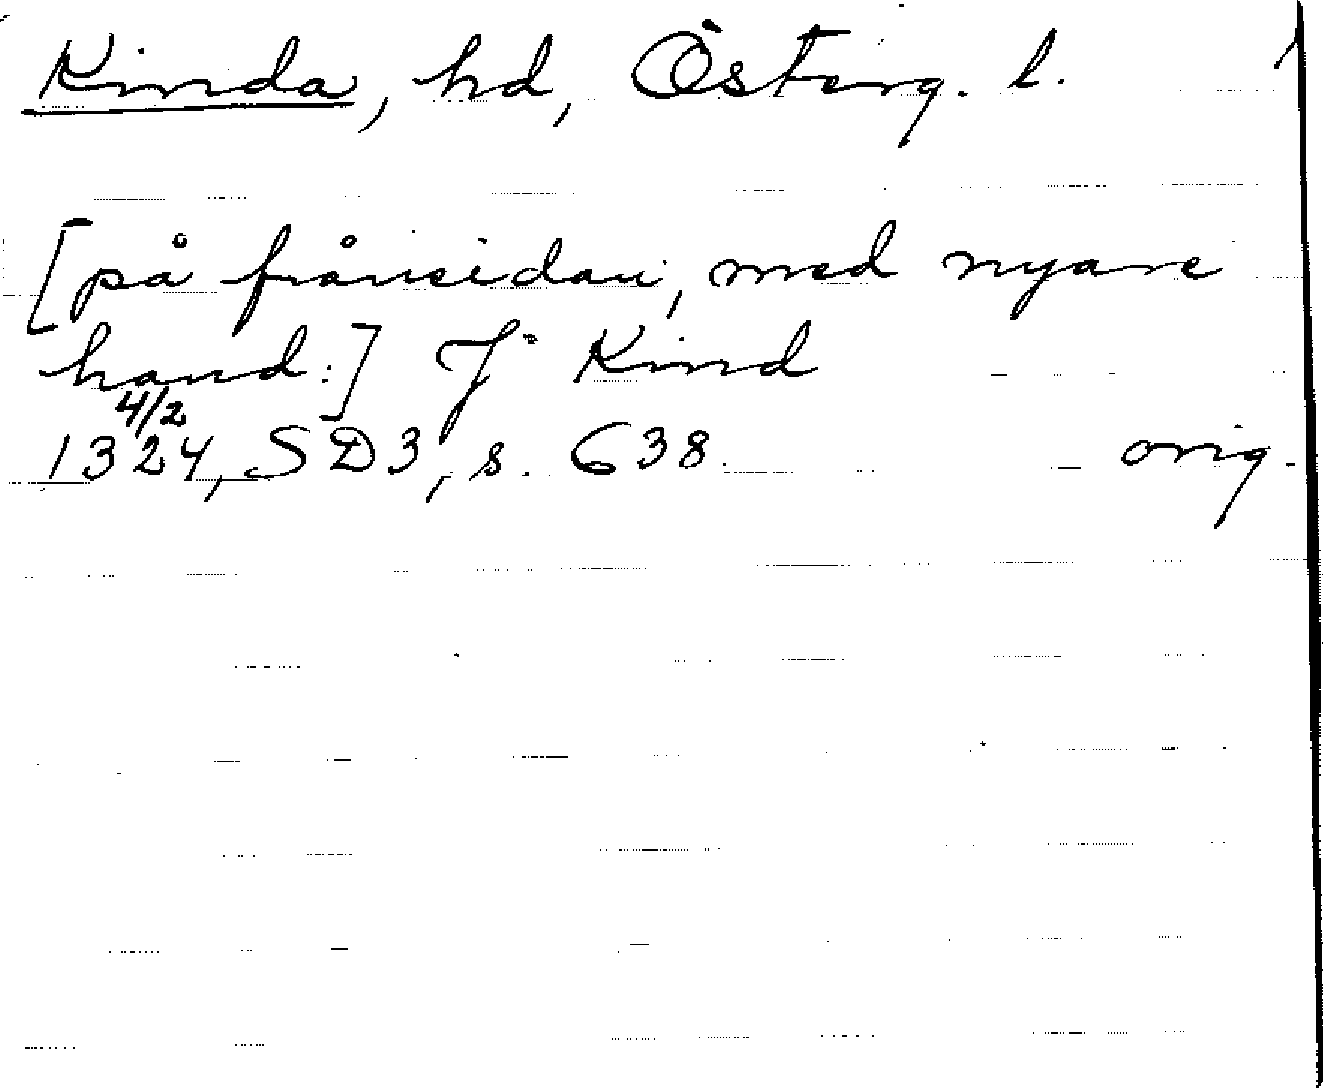 Kinda, hd, Österg. l.
[på frånsidan, med nyare
hand:] J Kind
4/2
1324, SD3, s. 638 orig.